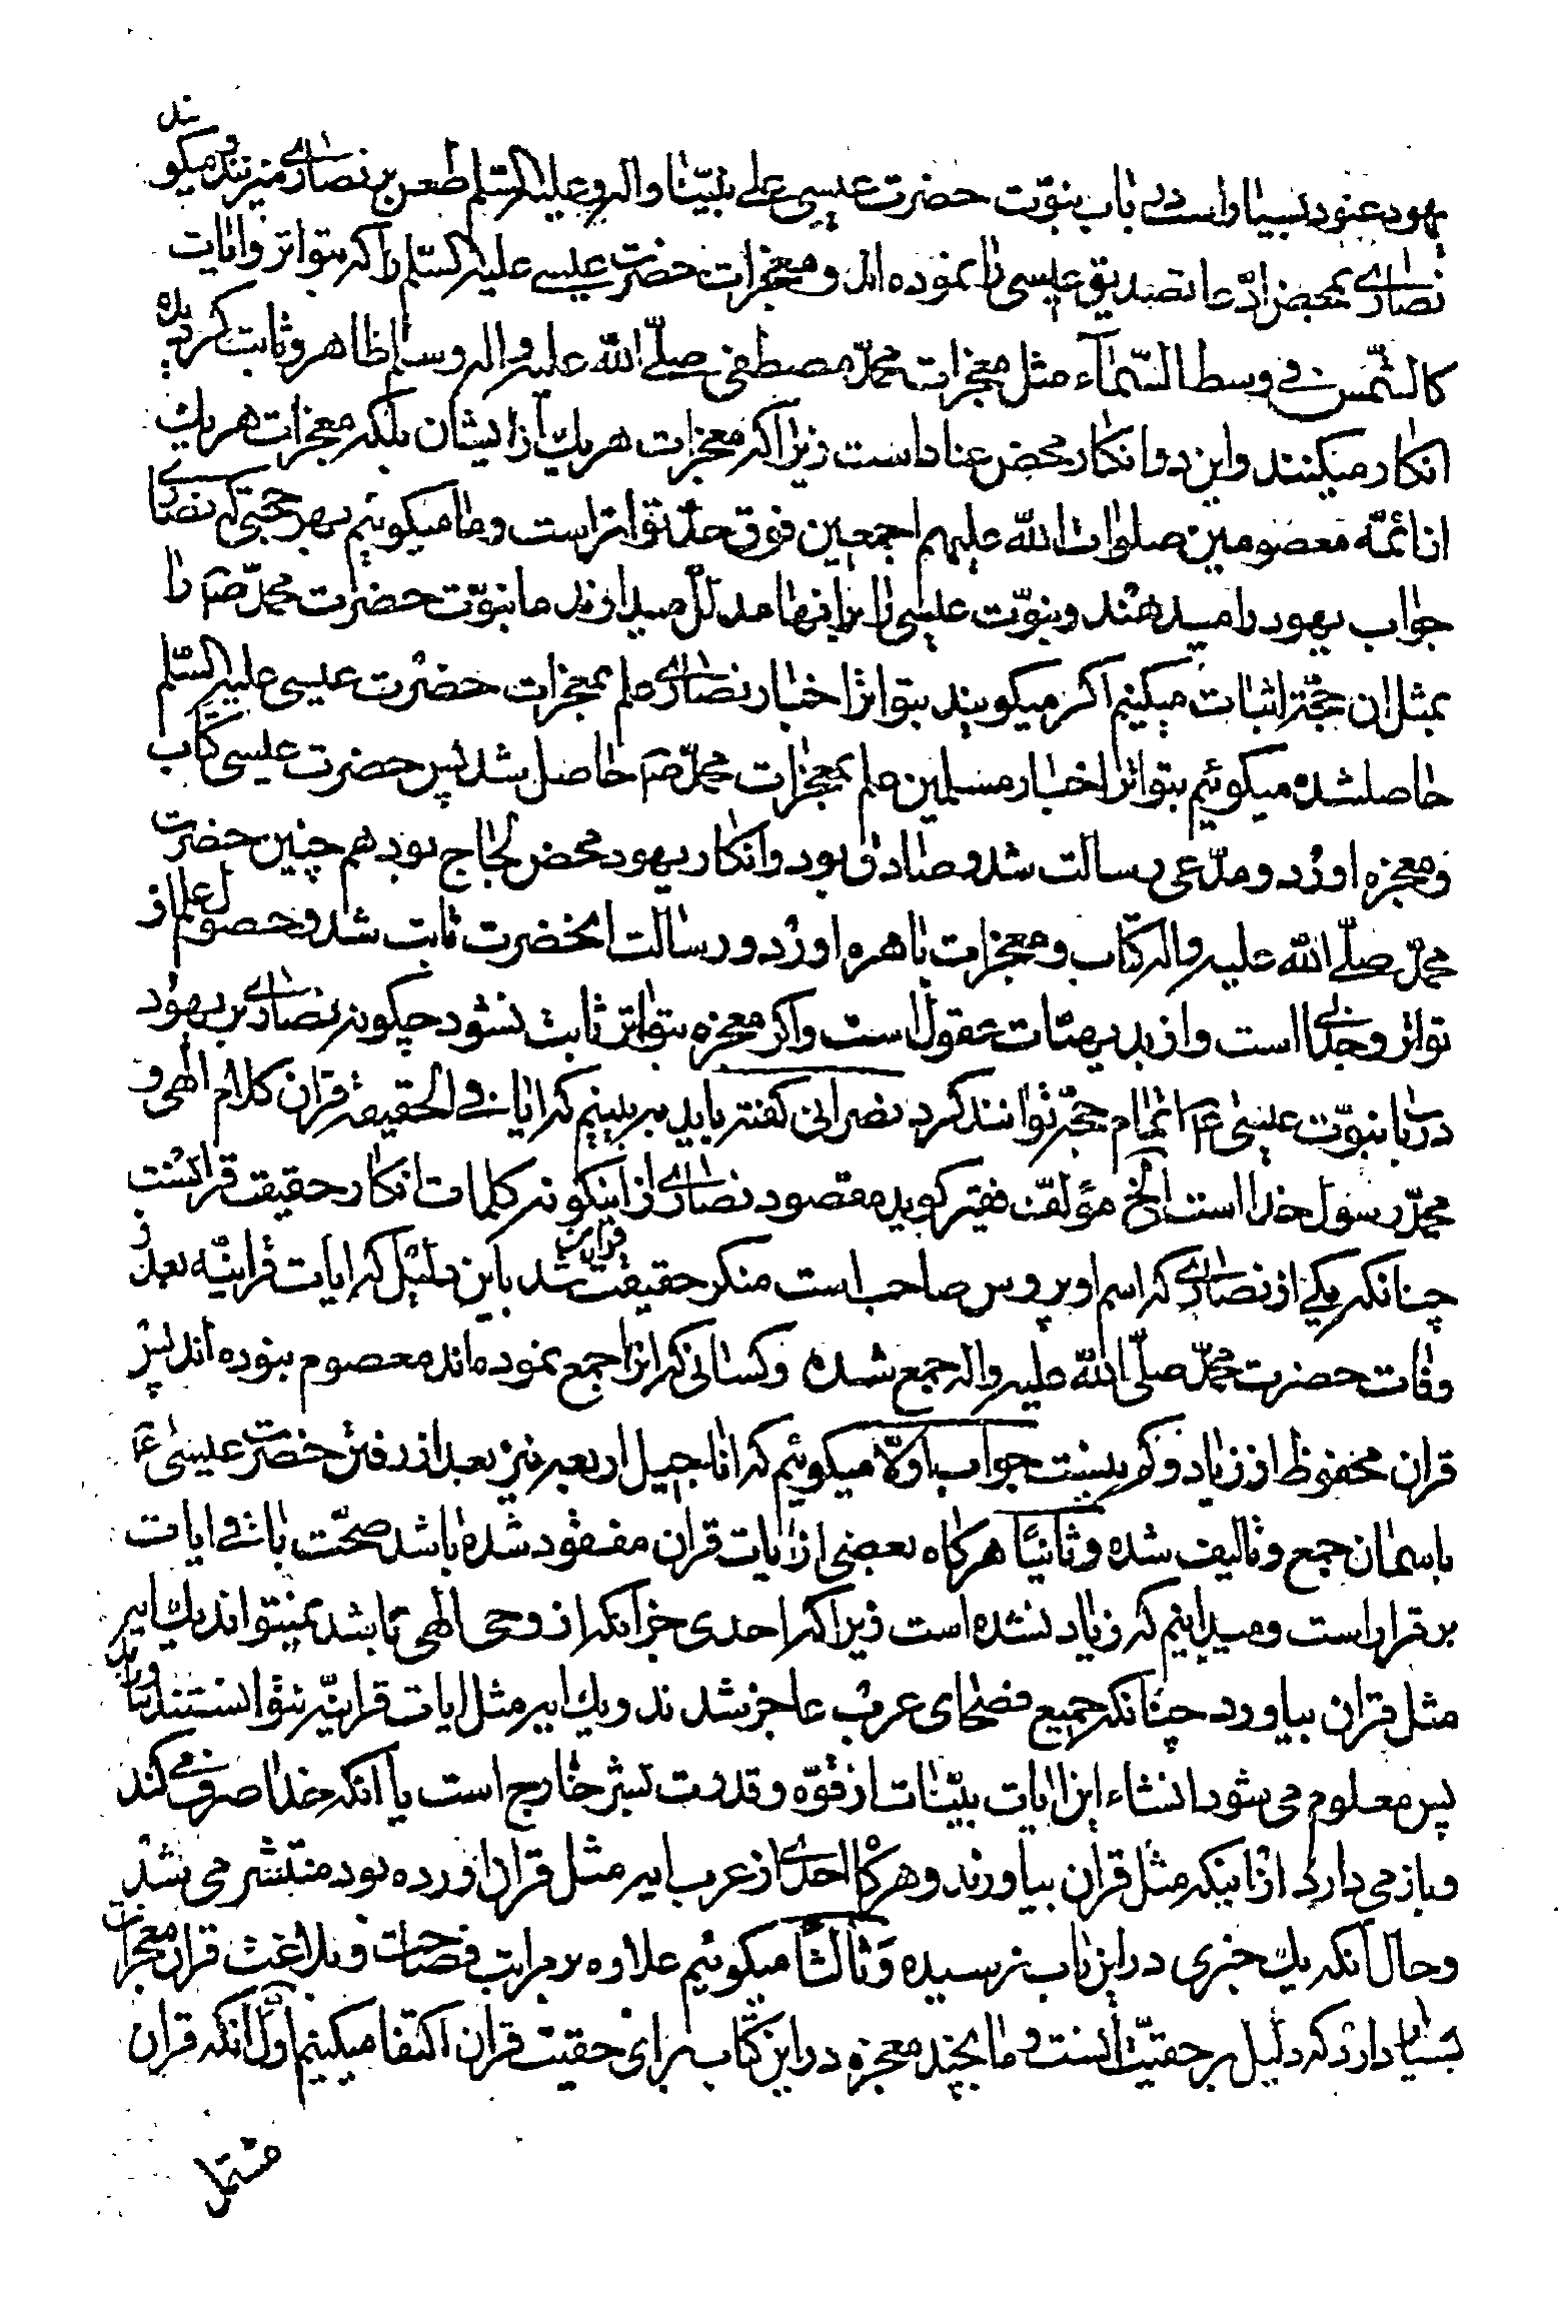 یهود عنود بسیار است در باب نبوّت حضرت عیسی علی نبیّنا واله وعلیه السّلم طعن بر نصاری میزنند و میکویند
نصاری بمحض ادّعا تصدیق عیسی را نموده اند و معجزات حضرت عیسی علیه السّلم را که بتواتر و ایات
کالشّمس فی وسط السّمآء مثل معجزات محمّد مصطفی صلّی اللّه علیه واله وسلم ظاهر و ثابت کردیده
انکار میکنند و این دو انکار محض عناد است زیرا که معجزات هر یك از ایشان بلکه معجزات هر یك
از ائمّه معصومین صلوات اللّه علیهم اجمعین فوق حدّ تواتر است و ما میکوئیم بهر حجتی که نصاری
جواب یهود را میدهند و نبوّت عیسی را بر انها مدلّل میدارند ما نبوّت حضرت محمّد ص را
بمثل ان حجّة اثبات میکنیم اکر میکویند بتواتر اخبار نصاری علم بمعجزات حضرت عیسی علیه السّلم
حاصلشده میکوئیم بتواتر اخبار مسلمین علم بمعجزات محمّد ص حاصل شد پس حضرت عیسی کتاب
و معجزه اورد و مدّعی رسالت شد و صادق بود و انکار یهود محض لجاج بود هم چنین حضرت
محمّد صلّی اللّه علیه واله کتاب و معجزات باهره اورد و رسالت انحضرت ثابت شد و حصول علم از
تواتر وجدانی است و از بدیهیّات عقول است و اکر معجزه بتواتر ثابت نشود چکونه نصاری بر یهود
در باب نبوّت عیسی ع اتمام حجّة توانند کرد نصرانی کفته باید به بینیم که ایا فی الحقیقة قران کلام الهی و
محمّد رسول خدا است الخ مؤلّف فقیر کوید مقصود نصاری از اینکونه کلمات انکار حقیقت قرانست
چنانکه یکی از نصاری که اسم او پروس صاحب است منکر حقیقت قران شد باین دلیل که ایات قرانیّه بعد از
وفات حضرت محمّد صلّی اللّه علیه واله جمع شده و کسانی که انرا جمع نموده اند معصوم نبوده اند پس
قران محفوظ از زیاد و کم نیست جواب اولّا میکوئیم که اناجیل اربعه نیز بعد از رفتن حضرت عیسی ع
باسمان جمع و تالیف شده و ثانیًا هرکاه بعضی از ایات قران مفقود شده باشد صحّت باقی ایات
بر قرار است و میدانیم که زیاد نشده است زیرا که احدی جز انکه از وحی الهی باشد نمیتواند یك ایه
مثل قران بیاورد چنانکه جمیع فصحای عرب عاجز شدند و یك ایه مثل ایات قرانیّه نتوانستند بیاورند
پس معلوم می شود انشاء این ایات بیّنات از قوّه و قدرت بشر خارج است یا انکه خدا صرف می کند
و باز می دارد از اینکه مثل قران بیاورند و هرکاه احدی از عرب ایه مثل قران اورده بود منتشر می شد
و حال انکه یك خبری در این باب نرسیده و ثالثًا میکوئیم علاوه بر مراتب فصاحت و بلاغت قران معجزات
بسیار دارد که دلیل بر حقیّت انست و ما بچند معجزه در این کتاب برای حقیت قران اکتفا میکنیم اوّل انکه قران
مشتمل